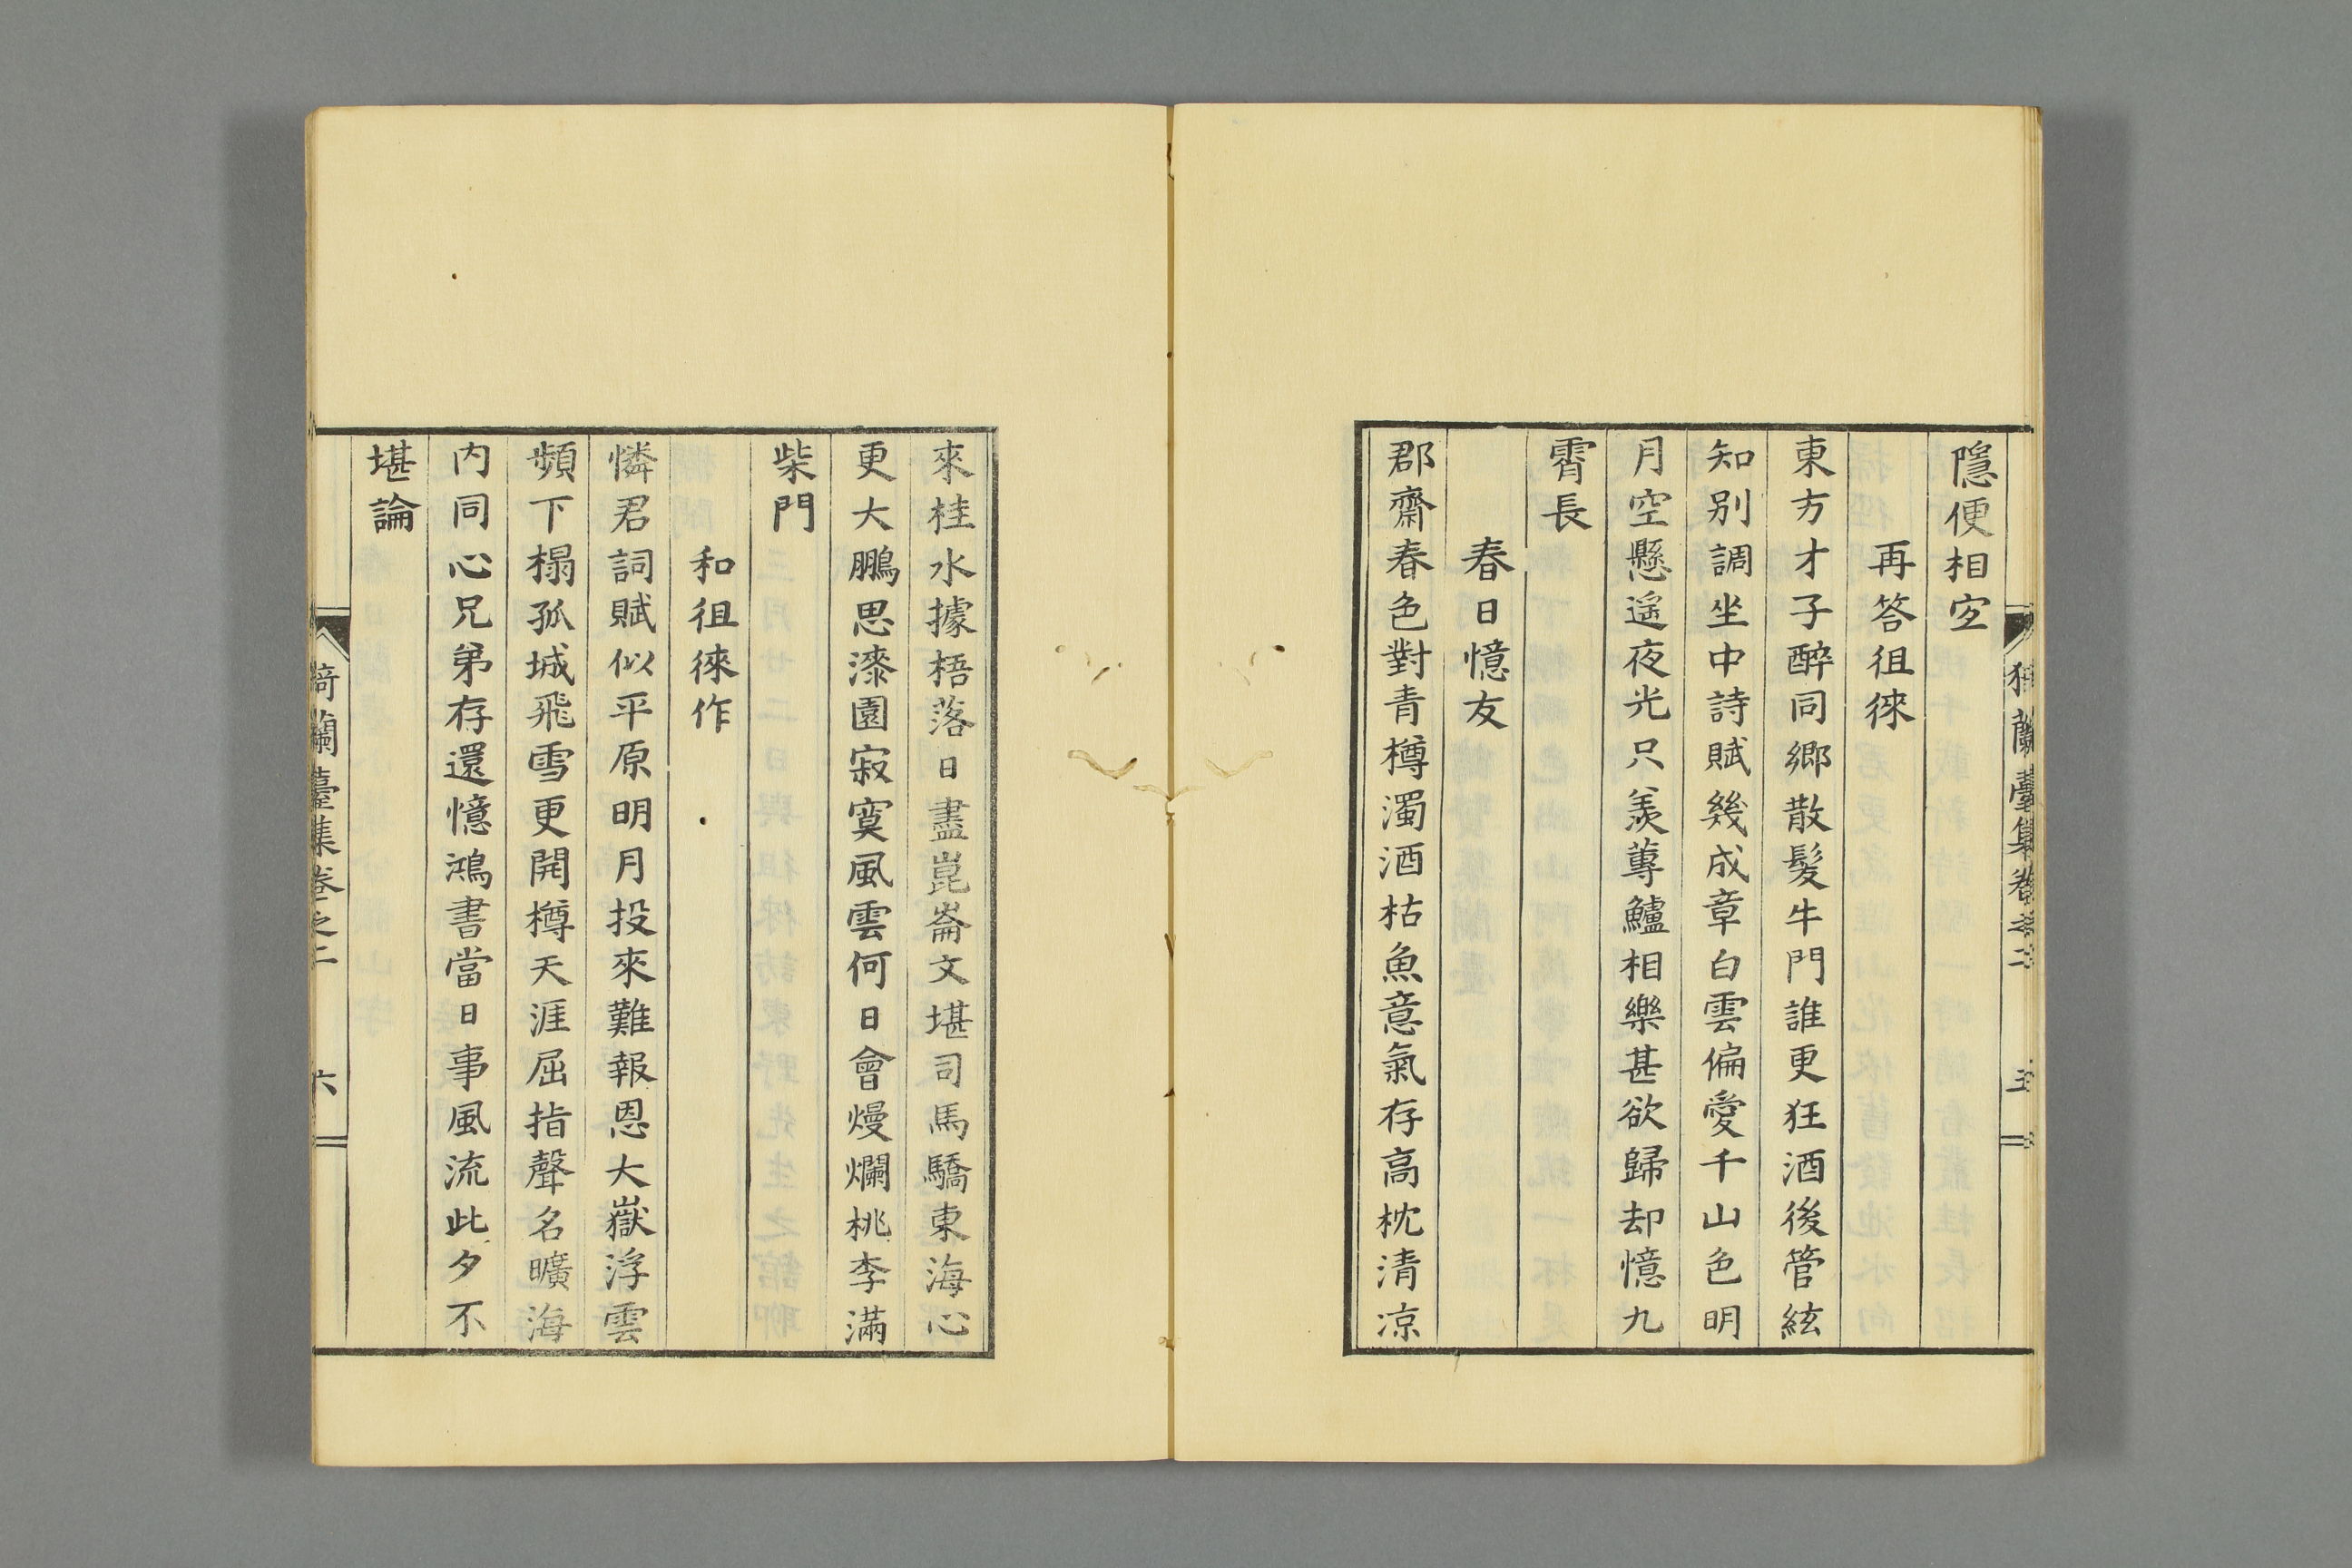 隱便相宐
再答徂徠
東方才子醉同鄉散髮牛門誰更狂酒後管絃
知別調坐中詩賦幾成章白雲偏愛千山色明
月空懸遙夜光只羨蓴鱸相樂甚欲歸却憶九
霄長
春日憶友
郡齋春色對青樽濁酒枯魚意氣存高枕清凉
來桂水據梧落日盡崑崙文堪司馬驕東海心
更大鵬思漆園寂寞風雲何日會熳爛桃李滿
柴門
和徂徠作
憐君詞賦似平原明月投來難報恩大嶽浮雲
頻下榻孤城飛雪更開樽天涯屈指聲名曠海
內同心兄弟存還憶鴻書當日事風流此夕不
堪論
猗蘭臺集卷之二
六